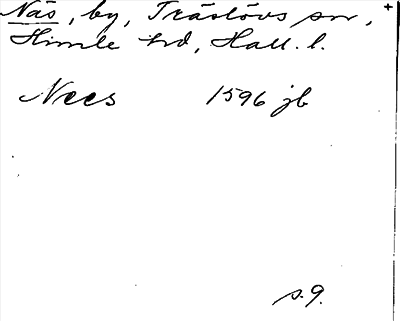 Näs, by, Träslövs sn,
Himle hd, Hall. l.
Nees 1596 jb
s. 9.